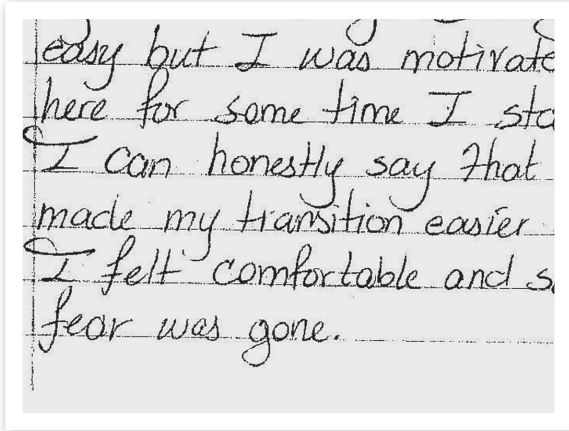 easy but I was motivate
here for some time I sta
I can honestly say that
made my transition easier
I felt comfortable and s
fear was gone.